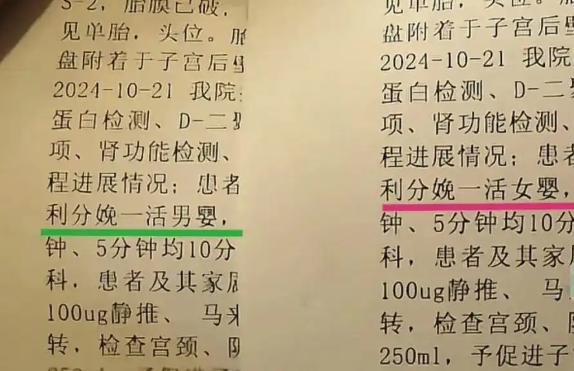 S-2，胎膜已破，
见单胎，头位。胎
盘附着于子宫后壁
2024-10-21 我院
蛋白检测、D-二
项、肾功能检测、
程进展情况；患者
利分娩一活男婴，
钟、5分钟均10分
科，患者及其家属
100ug静推、 马来
转，检查宫颈、阴
见单胎，头位。
盘附着于子宫后
2024-10-21 我院
蛋白检测、D-二
项、肾功能检测、
程进展情况；患者
利分娩一活女婴，
钟、5分钟均10分
科，患者及其家
100ug静推、 马
转，检查宫颈、
250ml，予促进子